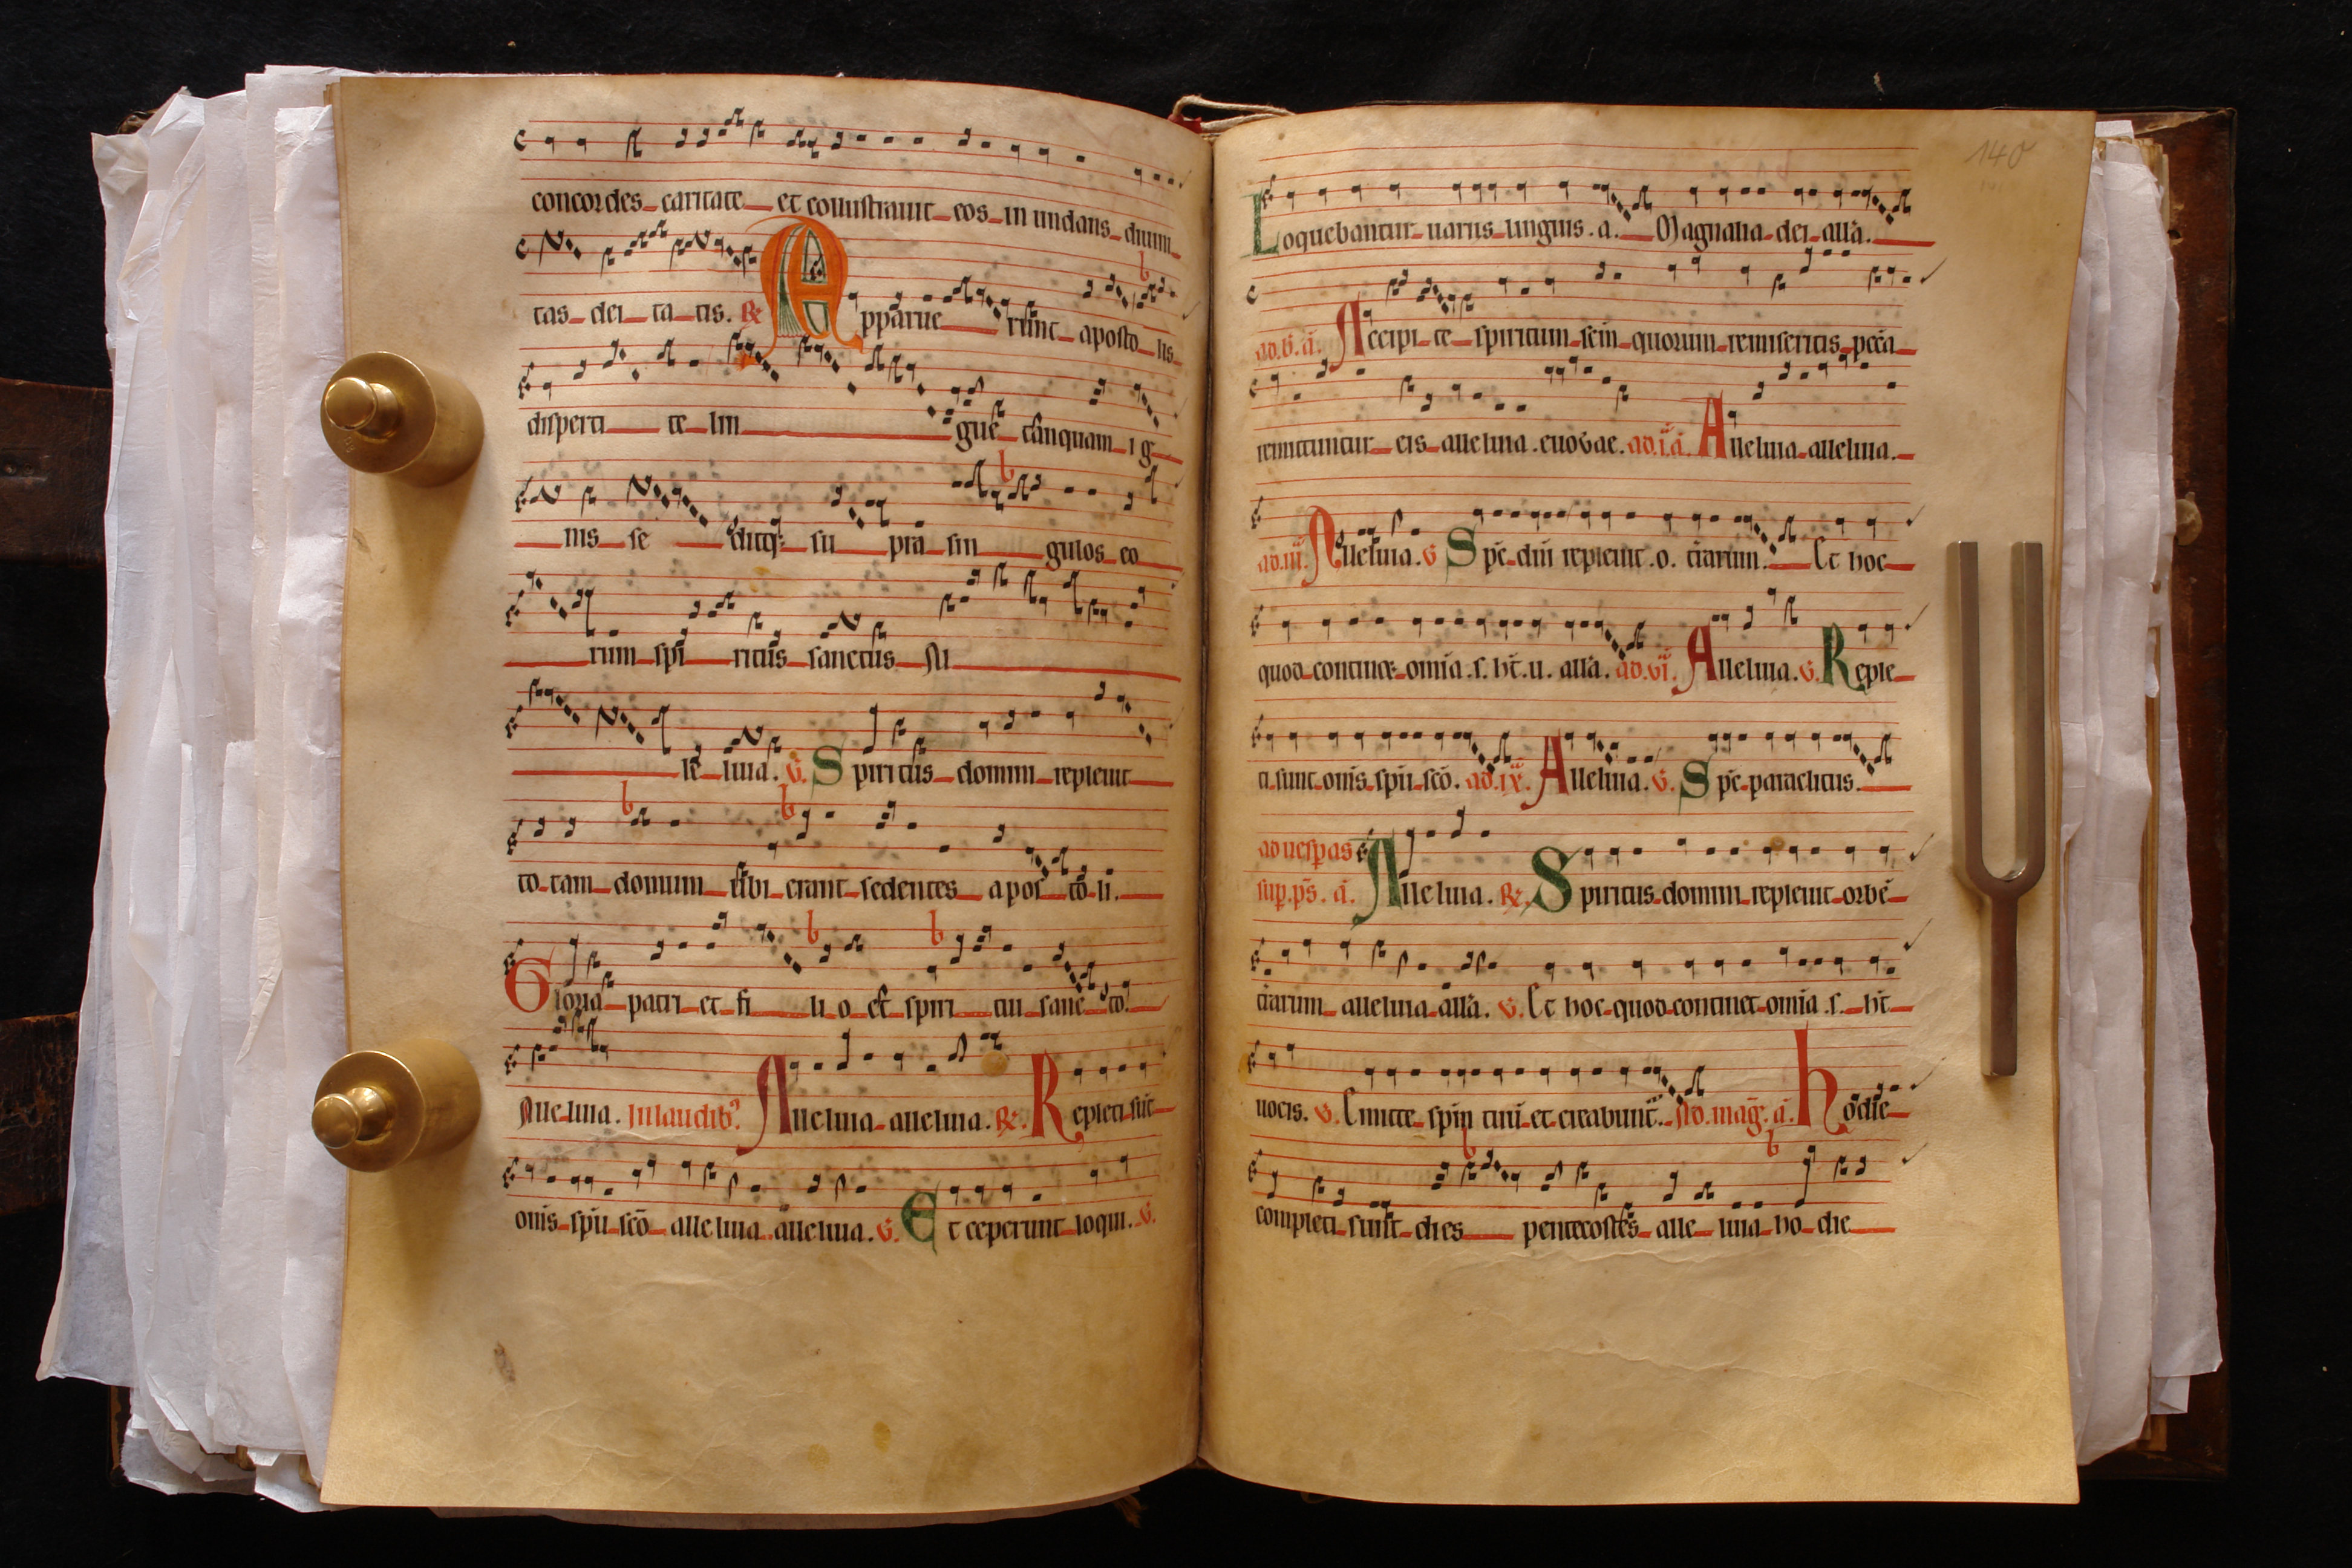 concordes caritate et collustrauit eos in undans diuini
tas dei ta tis. R Apparue runt aposto lis
disperti te lin gue tanquam i g
nis se ditq; su pra sin gulos eo
rum spi ritus sanctus Al
le luia. V. Spiritus domini repleuit
to tam domum ubi erant sedentes apos to li.
Gloria patri et fi li o et spiri tui sanc to.
Alle luia. In laudib; Alleluia alleluia. R. Repleti sūt
om̄s spū scō alle luia alleluia. V. Et ceperunt loqui. V.
140
Loquebantur uariis linguis. a. Magnalia dei all'a.
ad. b. a. Accipi te spiritum scm quorum remiseritis pcca
remittuntur eis alleluia. euovae. ad. i. a. Alleluia alleluia.
ad. iii. Alleluia. V Spc dni repleuit. o. t'rarum. Et hoc
quod continet omia. s. ht. u. all'a. ad. vi. Alleluia. V. Reple
ti sunt om̄s spū scō. ad. ix. Alleluia. V. Spc paraclitus.
ad uesp̄as
sup. ps. a. Alle luia. R. Spiritus domini repleuit orbē
t'rarum alleluia all'a. V. Et hoc quod continet omia. s. ht
uocis. V. Emitte spm tuū et creabunt'. Ad. mag. a. hodie
completi sunt dies pentecostes alle luia ho die